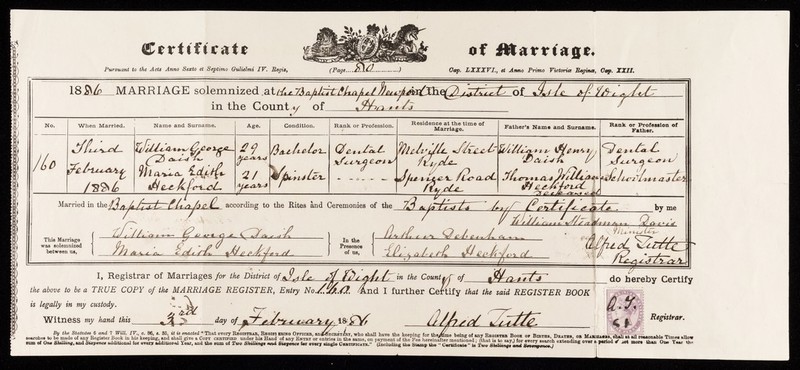 Certificate of Marriage.
Pursuant to the Acts Anno Sexto et Septimo Gulielmi IV. Regis, (Page 80) Cap. LXXXVI., et Anno Primo Victoriæ Reginæ, Cap. XXII.
1886 MARRIAGE solemnized at the Baptist Chapel Newport in the District of Isle of Wight
in the County of Hants
No. When Married. Name and Surname. Age. Condition. Rank or Profession. Residence at the time of Marriage. Father's Name and Surname. Rank or Profession of Father.
160 Third February 1886
William George Daish 29 years Bachelor Dental Surgeon Melville Street Ryde William Henry Daish Dental Surgeon
Maria Edith Heckford 21 years Spinster - - - - - Spencer Road Ryde Thomas William Heckford deceased Schoolmaster
Married in the Baptist Chapel according to the Rites and Ceremonies of the Baptists by Certificate by me
This Marriage was solemnized between us, William George Daish Maria Edith Heckford
In the Presence of us, Arthur Debenham Elizabeth Heckford
William Steadman Davis Minister
Alfred Tutte Registrar
I, Registrar of Marriages for the District of Isle of Wight in the County of Hants do hereby Certify
the above to be a TRUE COPY of the MARRIAGE REGISTER, Entry No. 160 And I further Certify that the said REGISTER BOOK
is legally in my custody.
Witness my hand this 3rd day of February 1886 Alfred Tutte Registrar.
A.T.
By the Statutes 6 and 7 Will. IV., c. 86, s. 35, it is enacted "That every REGISTRAR, REGISTERING OFFICER, and SECRETARY, who shall have the keeping for the time being of any REGISTER BOOK OF BIRTHS, DEATHS, OR MARRIAGES, shall at all reasonable Times allow
searches to be made of any Register Book in his keeping, and shall give a COPY CERTIFIED under his Hand of any ENTRY or entries in the same, on payment of the Fee hereinafter mentioned; (that is to say,) for every search extending over a period of not more than One Year the
sum of One Shilling, and Sixpence additional for every additional Year, and the sum of Two Shillings and Sixpence for every single CERTIFICATE." (Including the Stamp the "Certificate" is Two Shillings and Sevenpence.)